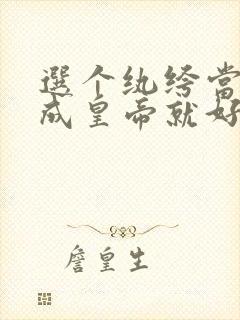 選个纨绔当
成皇帝就好
詹皇生